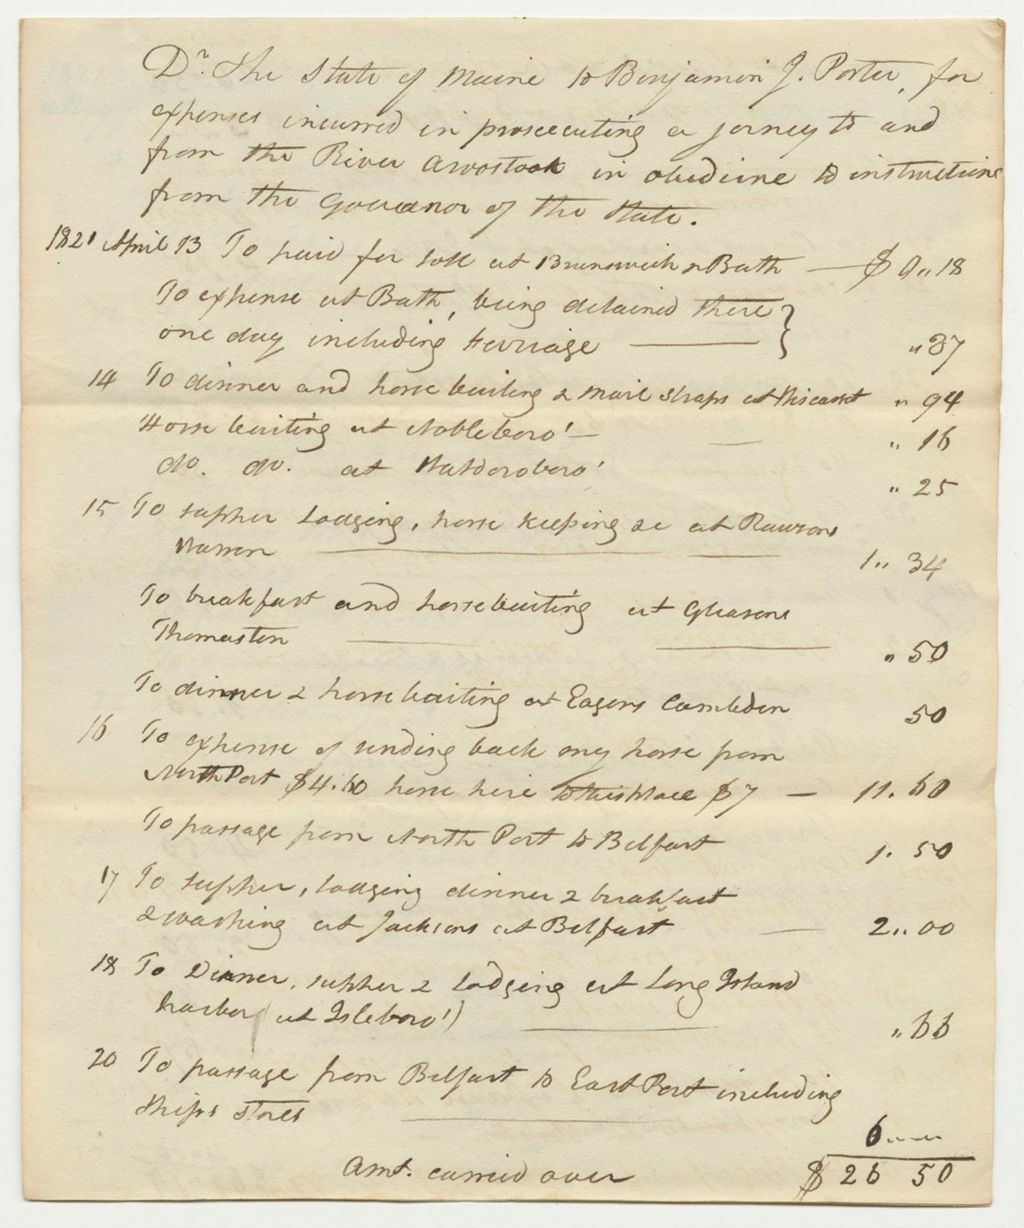 Dr. The State of Maine to Benjamin J. Porter, for
expenses incurred in prosecuting a jorney to and
from the River Aroostook in obedience to instructions
from the Governor of the State.
1821 April 13 To paid for toll at Brunswick & Bath — $ 0,,18
To expense at Bath, being detained there
one day including Ferriage — ,,87
14 To dinner and horse baiting & mail straps at Wiscasset ,, 94
Horse baiting at Nobleboro' — ,, 16
do. do. at Waldoroboro' ,, 25
15 To supher Lodging, horse keeping &c at Rawsons
Warren — 1,, 34
To breakfast and horse baiting at Gleasons
Thomaston — ,, 50
To dinner & horse baiting at Eagers Cambden 50
16 To expense of sending back my horse from
North Port $4.60 horse hire to this place $7 — 11. 60
To passage from North Port to Belfast 1. 50
17 To supher, lodging dinner & breakfast
& washing at Jacksons at Belfast — 2,, 00
18 To Dinner, supher & Lodging at Long Island
harbor (at Isleboro') — ,, 66
20 To passage from Belfast to East Port including
Ships Stores — 6,, ,,
Amt. carried over $ 26 50